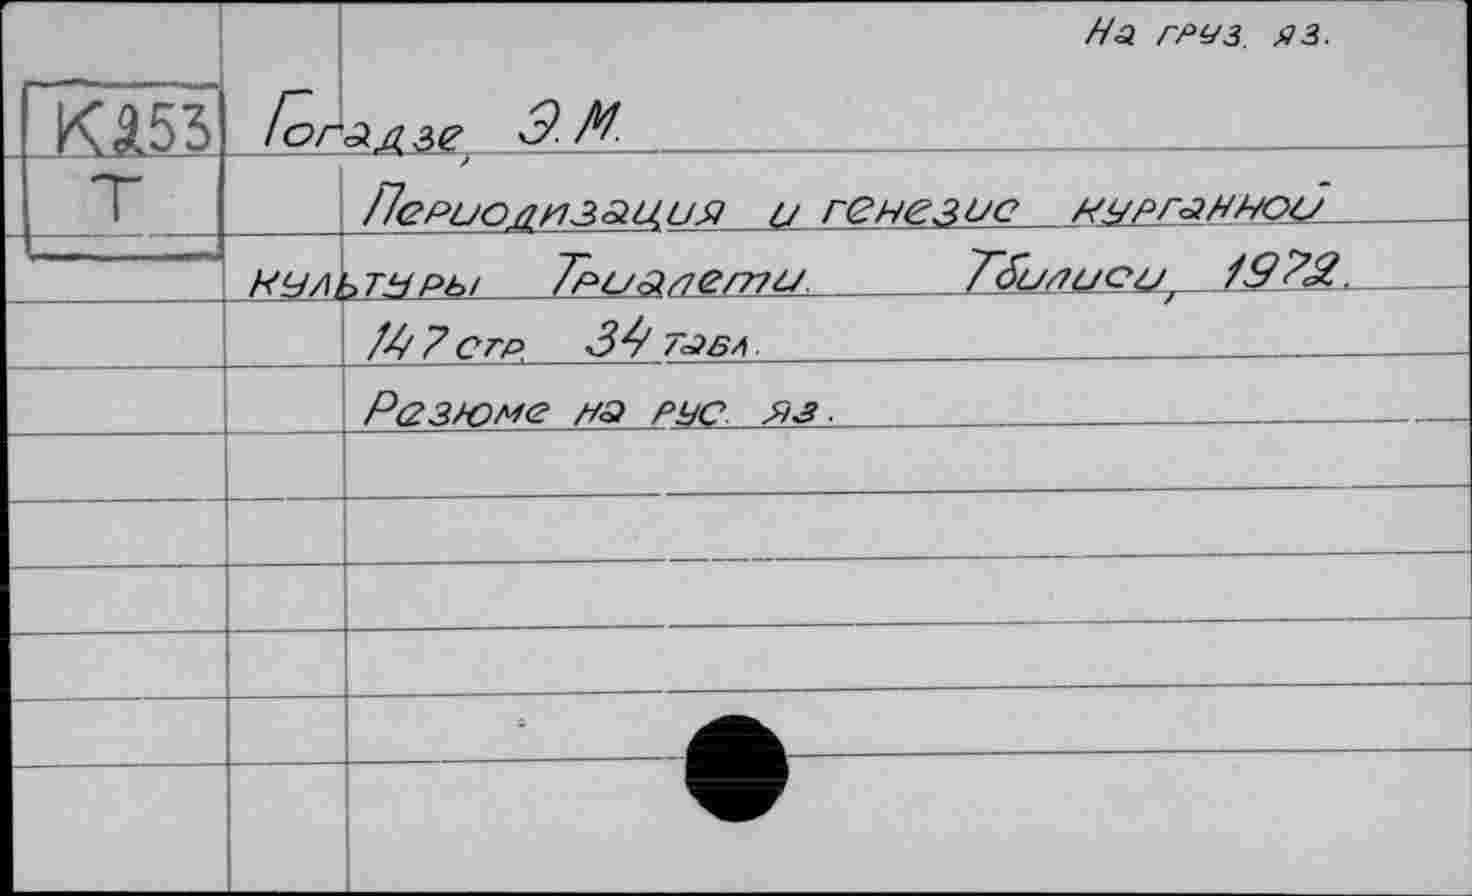 На груз. яз.
К253 Гогадзе, Э.М.
Т Периодизация и генезис курганной
культуры Триалети. Тбилиси, 1972.
147 стр. 34 табл.
Резюме на рус. яз.